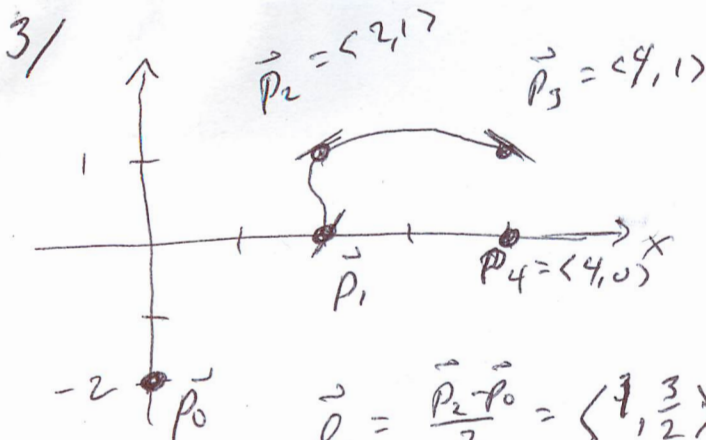 3/
p⃗₂ = <2,1>
p⃗₃ = <4,1>
1
x
p⃗₁
p⃗₄ = <4,0>
-2
p⃗₀
= (p⃗₂ - p⃗₀)/2 = < , 3/2>